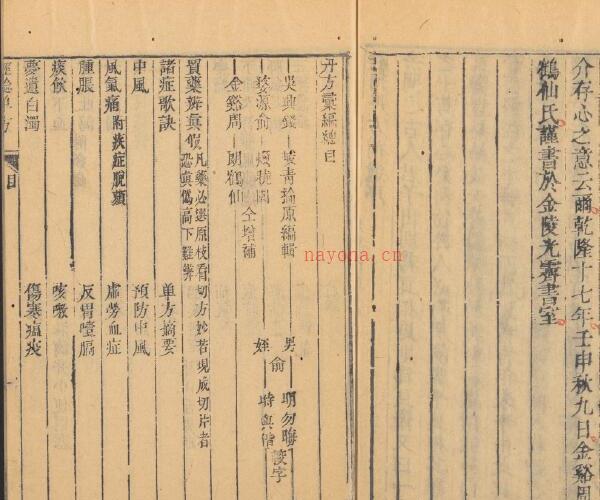 介存心之意云爾乾隆十七年壬申秋九日金谿周
鶴仙氏謹書於金陵光霽書室
丹方彙編總目
吳興錢 峻青掄原編輯
婺源俞 煥曉園
金谿周 朗鶴仙 仝增補
男 明勿晦
俞
姪 時與偕 校字
買藥辨真假 凡藥必選原枝看切方妙若現成切片者
恐真偽高下難辨
諸症歌訣 單方摘要
中風 預防中風
風氣痛 附痰症脫頦 虛勞血症
腫脹 反胃噎膈
痰飲 咳嗽
夢遺白濁 傷寒瘟疫
經驗單方 目
nayona.cn